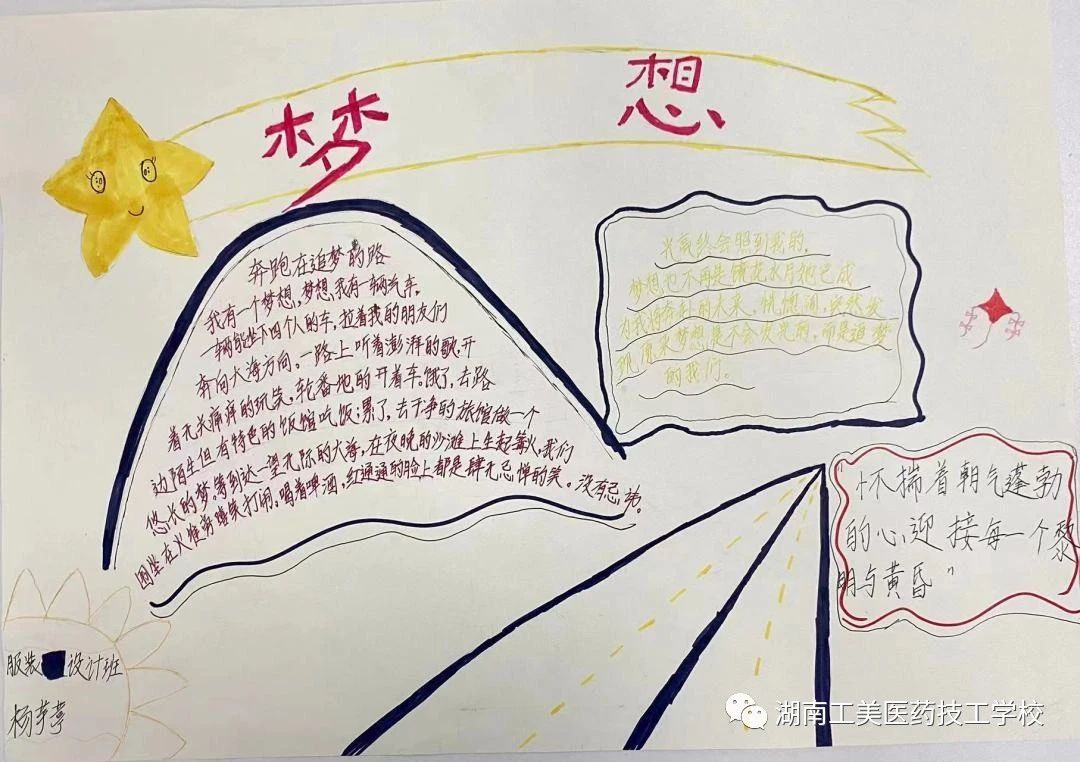 梦 想
奔跑在追梦的路
我有一个梦想,梦想我有一辆汽车。
一辆能坐下四个人的车,拉着我的朋友们
奔向大海方向。一路上听着澎湃的歌,开
着无关痛痒的玩笑,轮番地的开着车。饿了,去路
边陌生但有特色的饭馆吃饭;累了,去干净的旅馆做一个
悠长的梦,等到达一望无际的大海,在夜晚的沙滩上生起篝火,我们
围坐在火堆旁嬉笑打闹,喝着啤酒,红通通的脸上都是肆无忌惮的笑。没有忌讳。
光辰终会照到我的,
梦想也不再是镜花水月祂已成
为我将奔赴的未来,恍惚间,突然发
现,原来梦想是不会发光的,而是追梦
的我们。
"怀揣着朝气蓬勃
的心迎接每一个黎
明与黄昏"
服装 设计班
杨
湖南工美医药技工学校